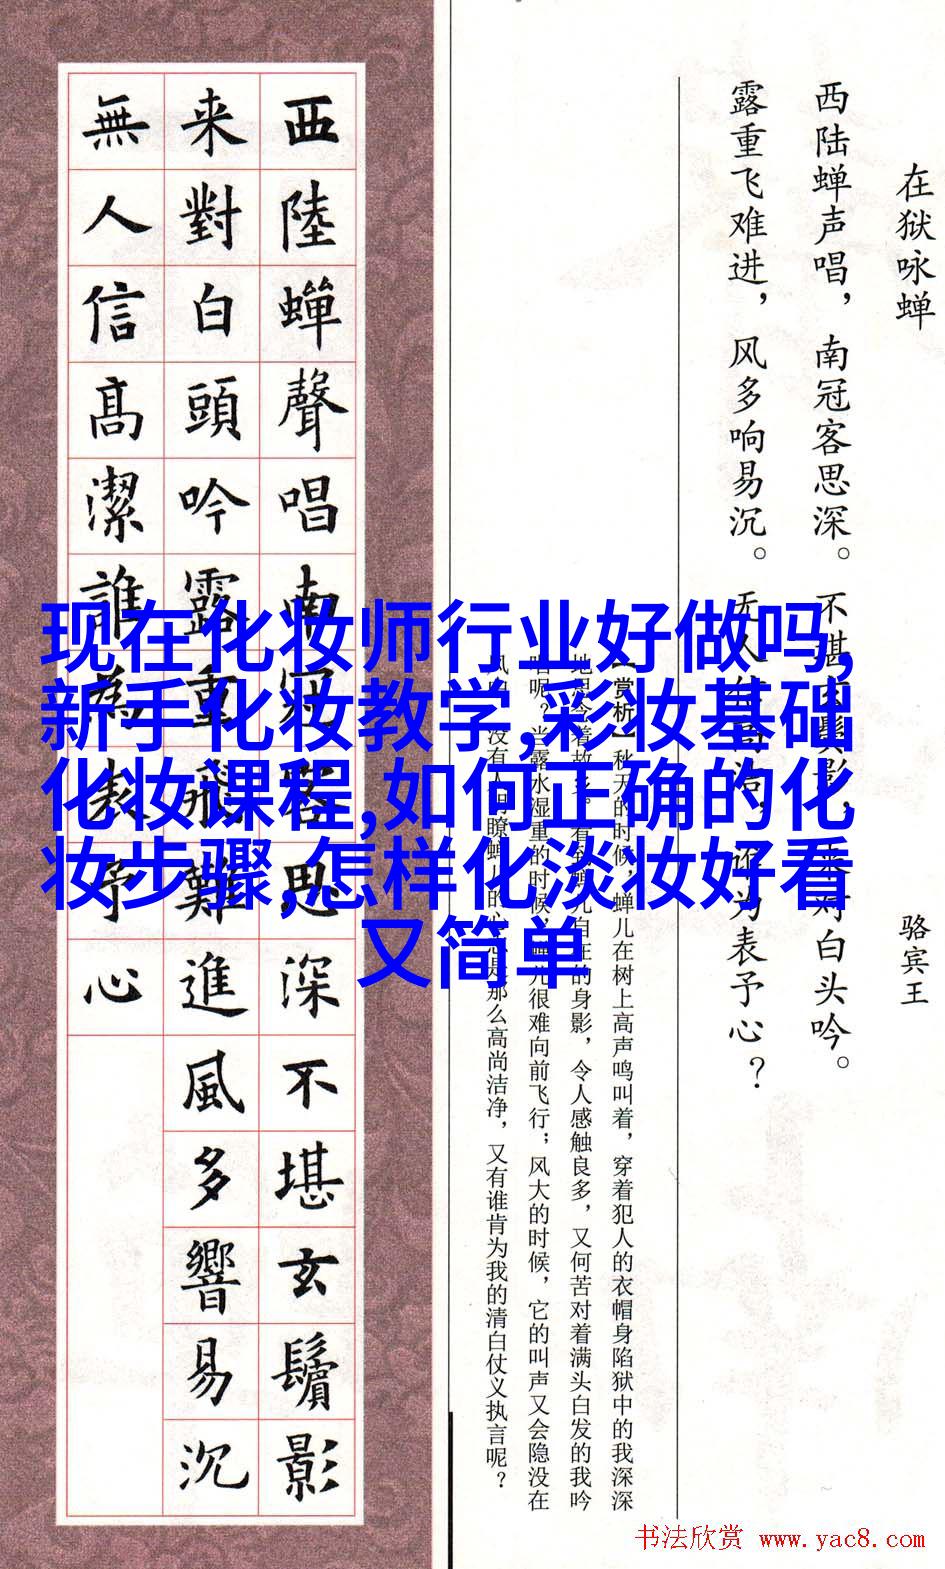 现在化妆师行业好做吗,
新手化妆教学,彩妆基础
化妆课程,如何正确的化
妆步骤,怎样化淡妆好看
又简单
在狱咏蝉
骆宾王
西陆蝉声唱，南冠客思深。不堪玄鬓影，来对白头吟。
露重飞难进，风多响易沉。无人信高洁，谁为表予心？
【赏析】秋天的时候，蝉儿在树上高声鸣叫着，穿着犯人的衣帽身陷狱中的我深深
地思念着故乡。看到蝉儿自在的身影，令人感触良多，又何苦对着满头白发的我吟
唱呢？当露水湿重的时候，蝉儿很难向前飞行；风大的时候，它的叫声又会隐没在
风中。没有人明瞭蝉儿的心思是那么高尚洁净，又有谁肯为我的清白仗义执言呢？
西陸蟬聲唱南冠客思深不堪玄鬢影
来對白頭吟露重飛難進風多響易沉
無人信高潔誰為表予心
书法欣赏 www.yac8.com